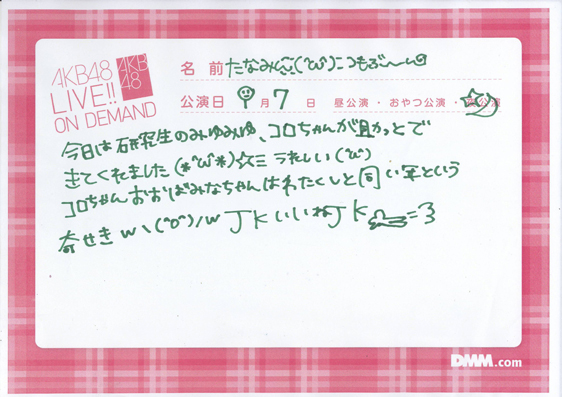 AKB48
LIVE!!
ON DEMAND
AKB
48
名 前 たなみん(˘ω˘)こつもぶ〜〜
公演日 9月7日 昼公演・おやつ公演・夜公演
今日は研究生のみゆみゆ、コロちゃんが助っとで
きてくれました(*˘ω˘*)☆ミ うれしい(˘ω˘)
コロちゃんおおばみなちゃんはわたくしと同い年という
奇せきw ヽ(˘o˘)/w JKいいねJK =3
DMM.com